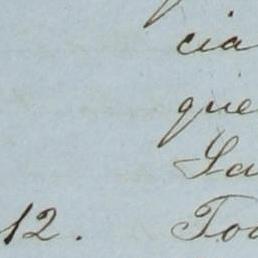 cia
que
La
12. Too